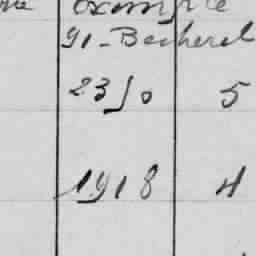 exemple
91-Becherel
23/0 5
1918 4